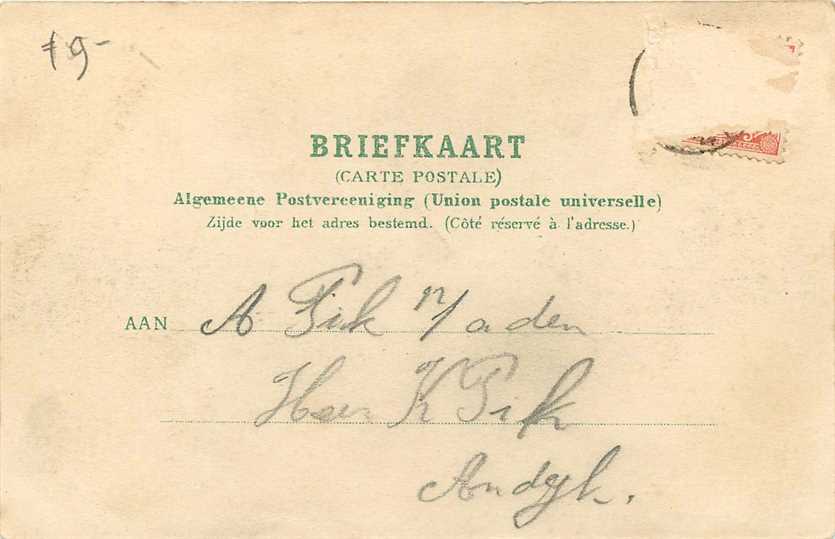 f 9-
BRIEFKAART
(CARTE POSTALE)
Algemeene Postvereeniging (Union postale universelle)
Zijde voor het adres bestemd. (Côté réservé à l'adresse.)
AAN A Pik aden
Heer K Pik
Andijk.